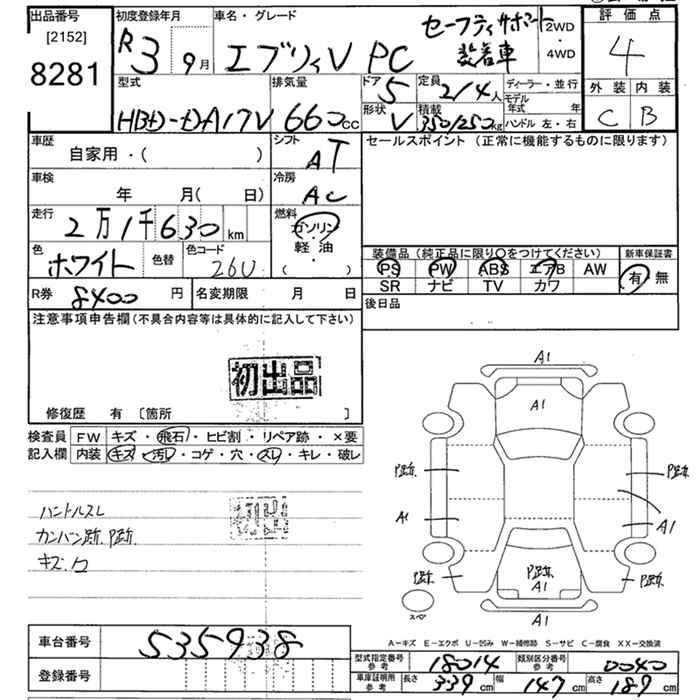 出品番号
[2152]
8281
初度登録年月
R3 9月
車名・グレード
エブリィV PC
セーフティサポート
装着車
2WD
・
4WD
評価点
4
外装 内装
C B
型式
HBD-DA17V
排気量
660cc
ドア
5
定員
2/4人
ディーラー・並行
モデル年式 年
形状
V
積載
350/250kg
ハンドル 左・右
車歴
自家用・( )
シフト
AT
セールスポイント (正常に機能するものに限ります)
車検
年 月( 日)
冷房
AC
走行
2万1千630km
燃料
ガソリン
軽油
( ・ )
色
ホワイト
色替
色コード
26U
装備品 (純正品に限り○をつけてください)
新車保証書
PS PW ABS エアB AW
SR ナビ TV カワ
有・無
R券
8400円
名変期限 月 日
後日品
注意事項申告欄 (不具合内容等は具体的に記入して下さい)
初出品
修復歴 有 [箇所 ]
検査員
記入欄
FW キズ・飛石・ヒビ割・リペア跡・×要
内装 キズ・汚レ・コゲ・穴・スレ・キレ・破レ
ハンドルスレ
初出
カンバン跡. P跡.
キズ.
A1
A1
P跡.
P跡.
A1
A1
P跡.
P跡.
A1
P跡.
A1
スペア
A-キズ E-エクボ U-凹み W-補修跡 S-サビ C-腐食 XX-交換済
車台番号
535938
登録番号
型式指定番号
参考
18014
類別区分番号
参考
0040
車庫証明用
参考
長さ 339cm 幅 147cm 高さ 189cm